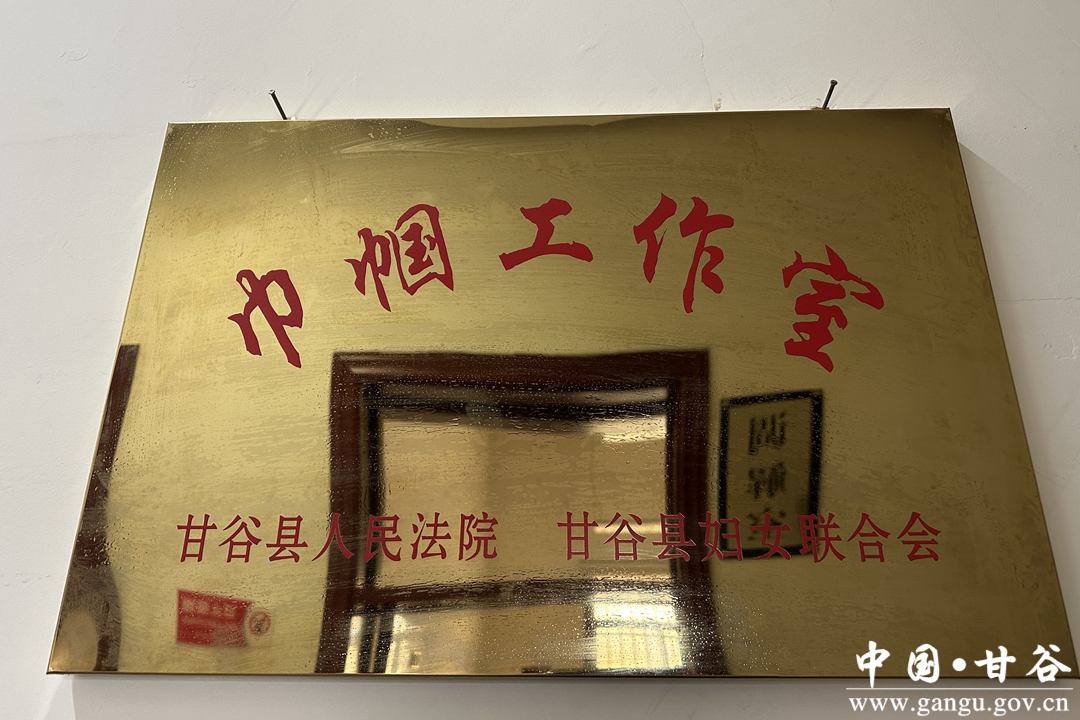 巾帼工作室
甘谷县人民法院 甘谷县妇女联合会
中国·甘谷
www.gangu.gov.cn